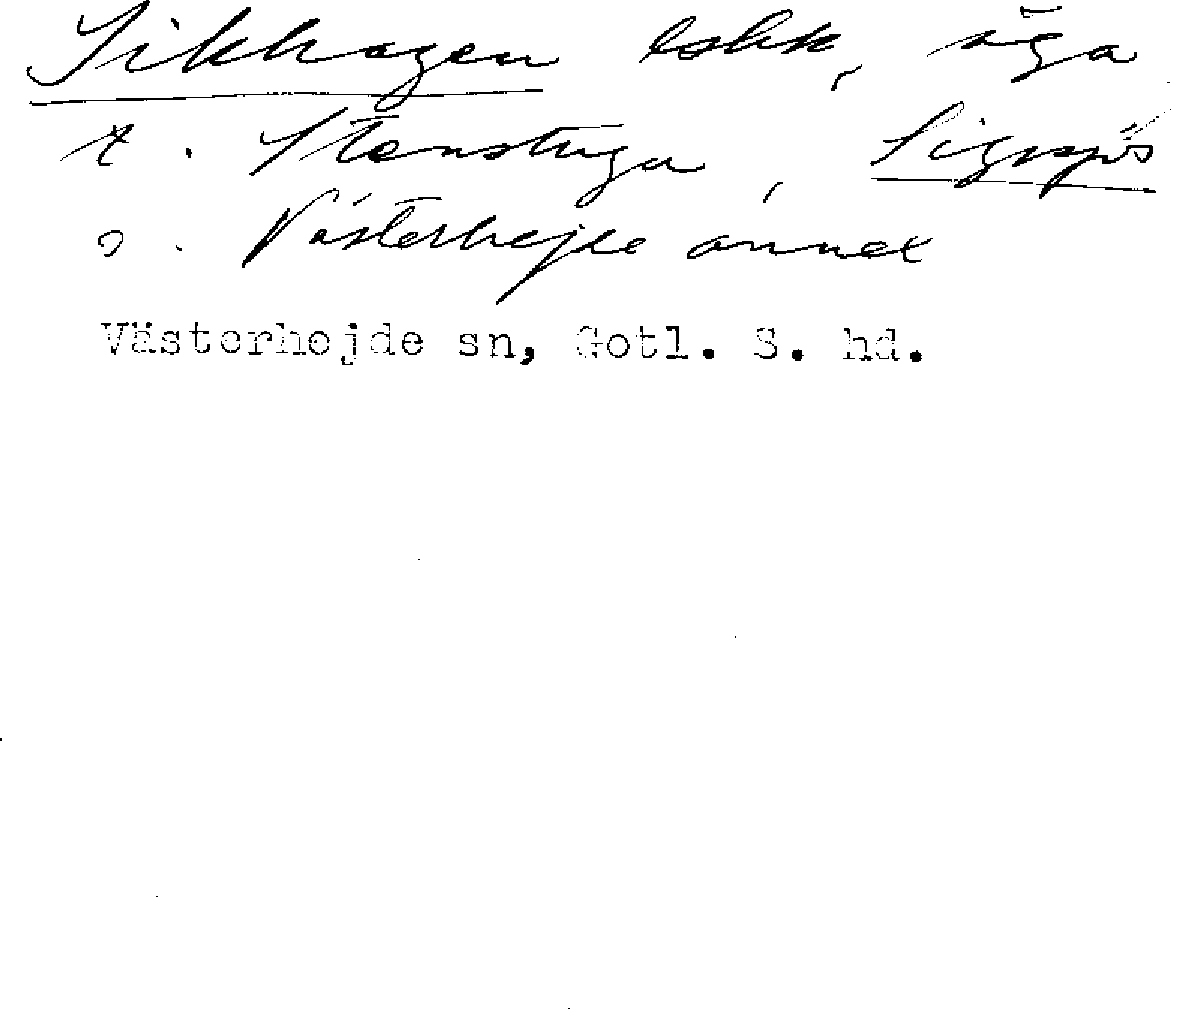 Sikhagen eskk, äga
t. Stenstuga, Sigsjö
o. Västerhejde annex
Västerhejde sn, Gotl. S. hd.